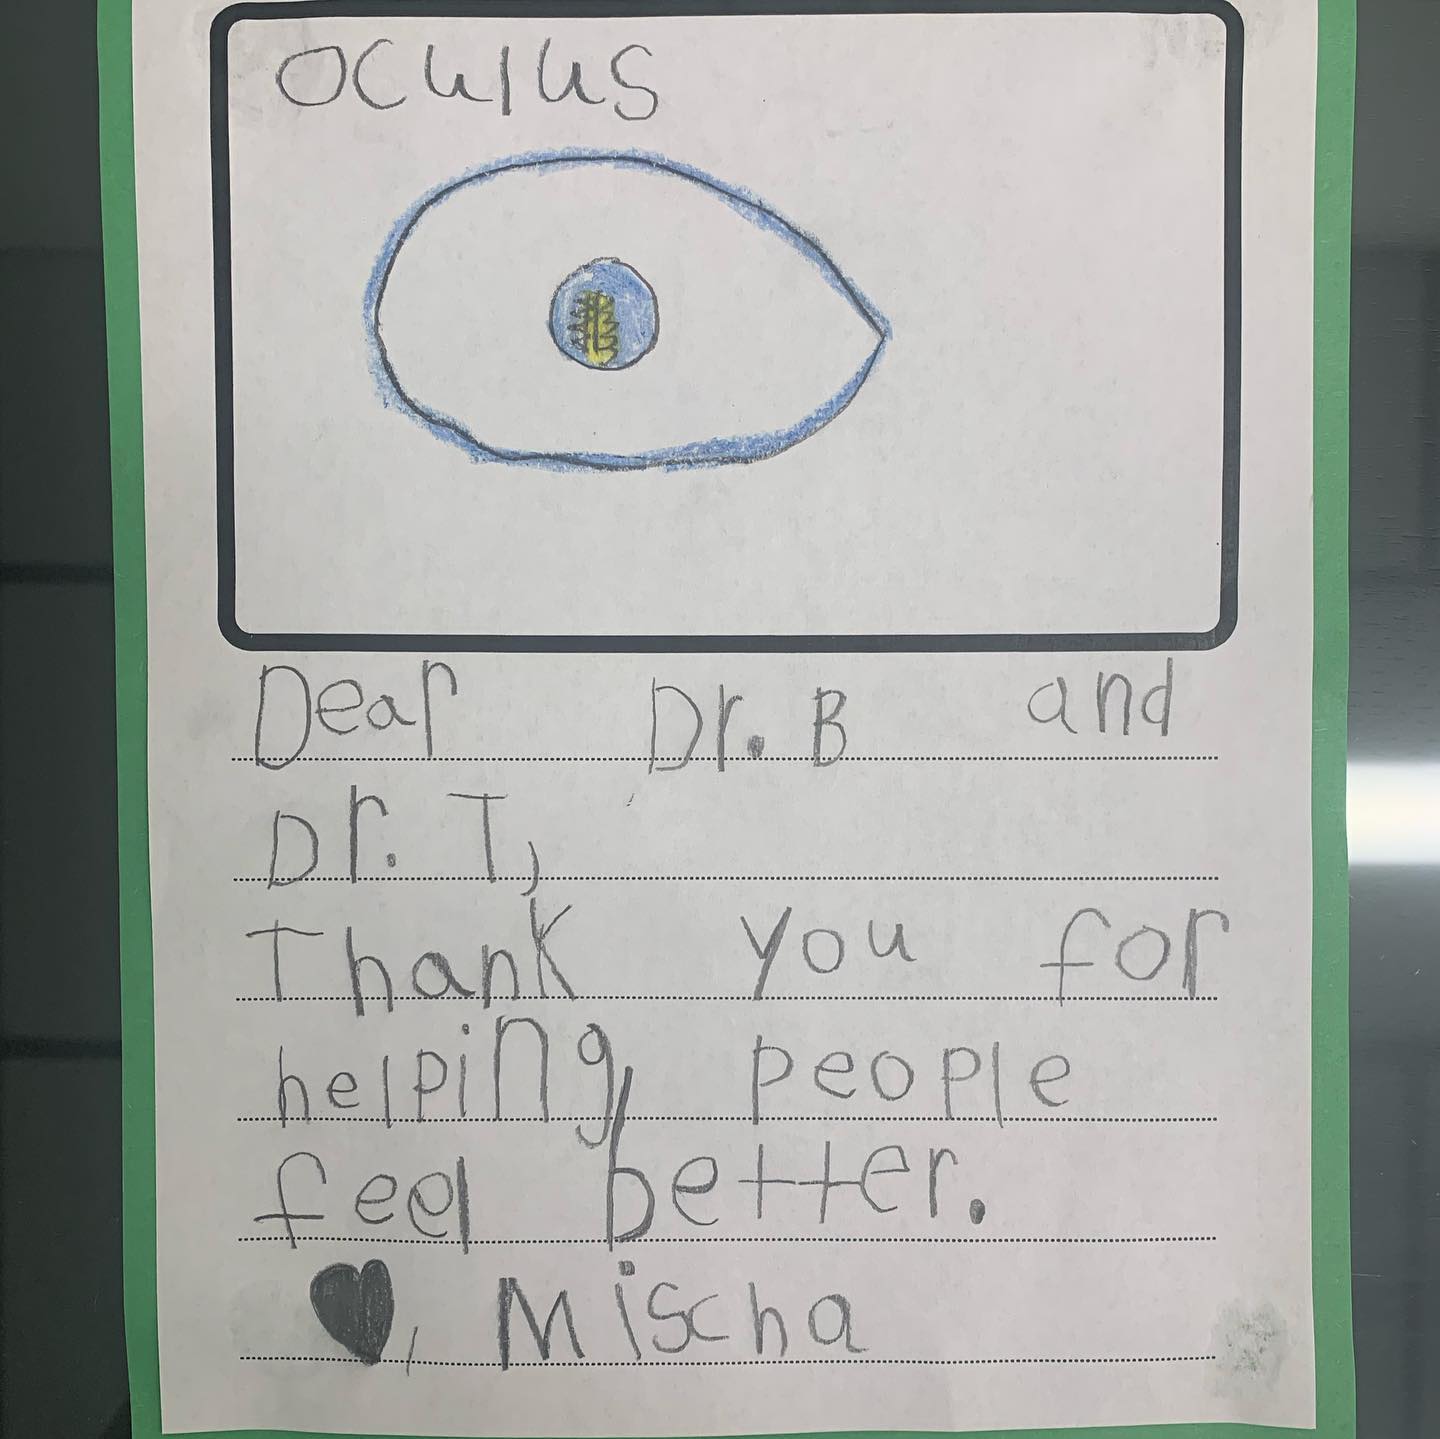 Oculus
Dear Dr. B and
Dr. T,
Thank you for
helping people
feel better.
♥, Mischa